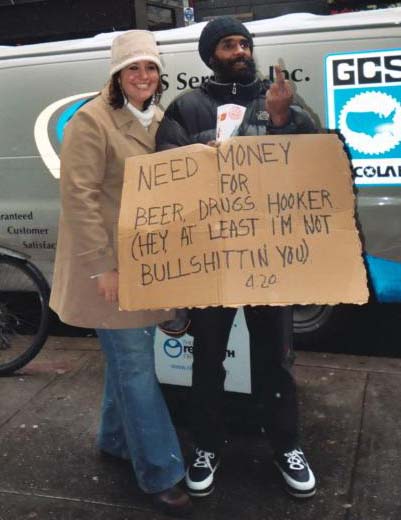 s Serv Inc.
GCS
COLAB
aranteed
Customer
Satisfac
NEED MONEY
FOR
BEER, DRUGS HOOKER
(HEY AT LEAST I'M NOT
BULLSHITTIN YOU)
4.20
TH
re TH
www.